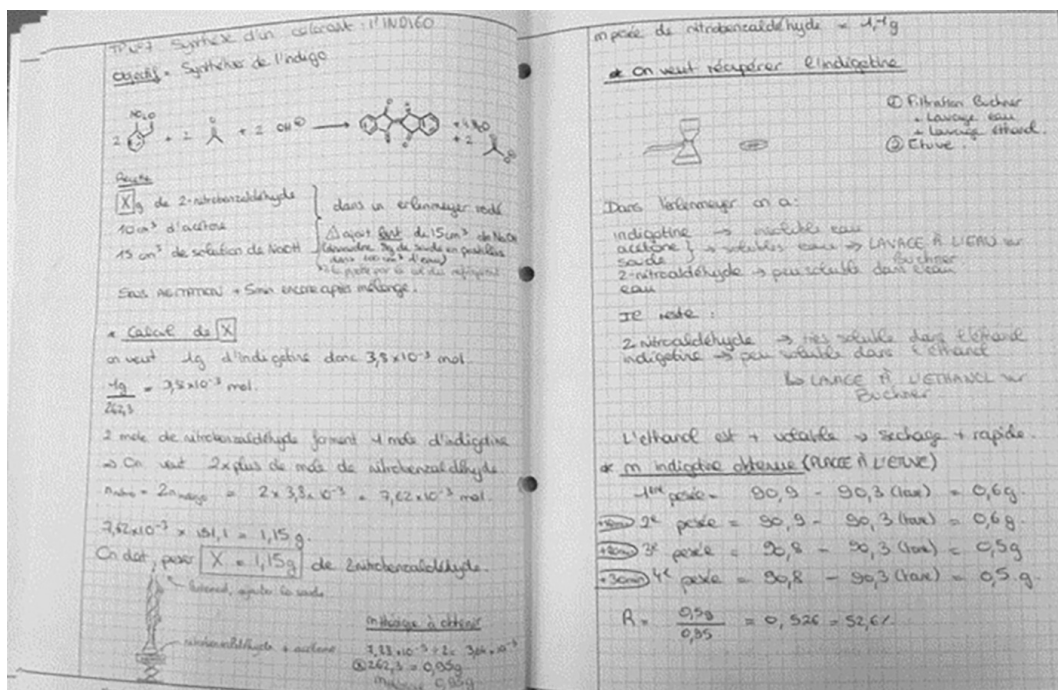 TP n°7 Synthèse d'un colorant : l'INDIGO
Objectif = Synthétiser de l'indigo
2 + 2 + 2 OH⊖ → + 4 H₂O
+ 2
X g de 2-nitrobenzaldéhyde
10 cm³ d'acétone
15 cm³ de solution de NaOH
dans un erlenmeyer rodé
⚠ ajout lent du 15 cm³ de NaOH
SOUS AGITATION + 5min encore après mélange.
* Calcul de X
on veut 1g d'indigotine donc 3,8 x 10⁻³ mol.
1g / 262,3 = 3,8 x 10⁻³ mol.
2 mole de nitrobenzaldéhyde forment 1 mole d'indigotine
⇒ On veut 2x plus de mole de nitrobenzaldéhyde.
= 2 x 3,8 x 10⁻³ = 7,62 x 10⁻³ mol.
7,62 x 10⁻³ x 151,1 = 1,15 g.
On doit peser X = 1,15g de 2nitrobenzaldéhyde.
ajouter la soude
nitrobenzaldéhyde + acétone
m théorique à obtenir
7,28 x 10⁻³ ÷ 2 = 3,64 x 10⁻³
x 262,3 = 0,95g
0,95g
m pesée de nitrobenzaldéhyde = 1,1g
* On veut récupérer l'indigotine
① Filtration Buchner
+ Lavage eau
+ Lavage éthanol.
② Etuve.
Dans l'erlenmeyer on a:
indigotine → insoluble eau
acétone } → solubles eau → LAVAGE À L'EAU sur
soude Buchner
2-nitroaldéhyde → peu soluble dans l'eau
eau
Il reste :
2-nitroaldéhyde → très soluble dans l'éthanol
indigotine → peu soluble dans l'éthanol
↳ LAVAGE À L'ETHANOL sur
Buchner
L'éthanol est + volatile → séchage + rapide.
* m indigotine obtenue (PLACÉ À L'ETUVE)
1ère pesée = 90,9 - 90,3 (tare) = 0,6g.
2e pesée = 90,9 - 90,3 (tare) = 0,6g.
+20min 3e pesée = 90,8 - 90,3 (tare) = 0,5g
+30min 4e pesée = 90,8 - 90,3 (tare) = 0,5.g.
R = 0,5g / 0,95 = 0,526 = 52,6%